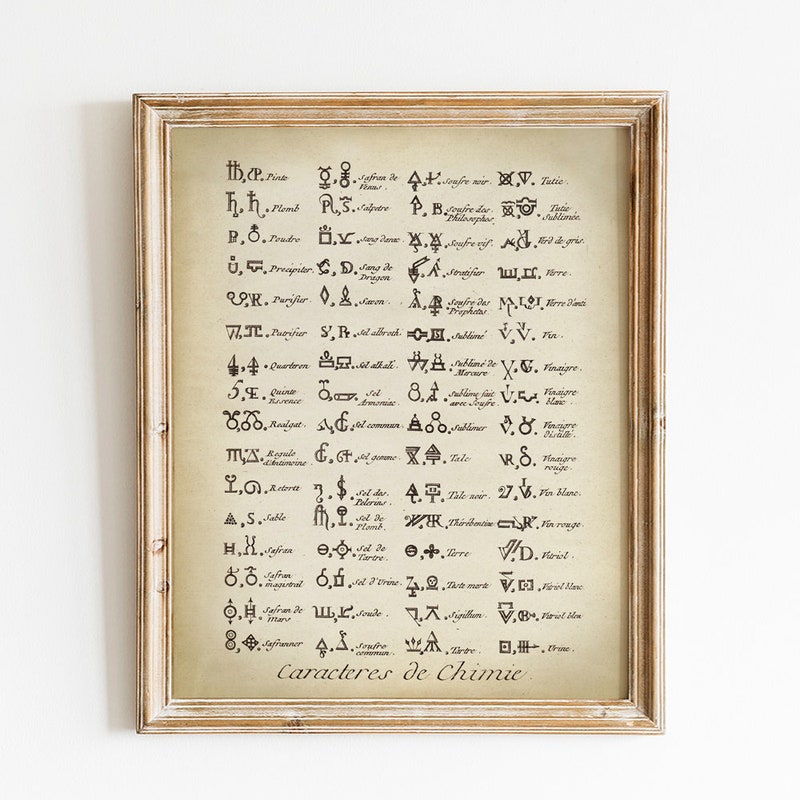 Pinte
Plomb
Poudre
Precipiter
Purifier
Putrifier
Quarteron
Quinte
Essence
Realgat
Regule
d'Antimoine
Retorte
Sable
Safran
Safran
magistral
Safran de
Mars
Safranner
Safran de
Venus
Salpetre
Sang de
Dragon
Savon
Sel albroth
Sel alkali
Sel
Armoniac
Sel commun
Sel gemme
Sel des
Pelerins
Sel de
Plomb
Sel de
Tartre
Sel d'Urine
Soude
Soufre
commun
Soufre noir
Soufre des
Philosophes
Soufre vif
Stratifier
Soufre des
Prophetes
Sublimé
Sublimé de
Mercure
Sublime fait
avec Soufre
Sublimer
Talc
Talc noir
Thérébentine
Terre
Teste morte
Sigillum
Tartre
Tutie
Tutie
Sublimée
Verd de gris
Verre
Verre d'anti
Vin
Vinaigre
Vinaigre
blanc
Vinaigre
distillé
Vinaigre
rouge
Vin blanc
Vin rouge
Vitriol
Vitriol blanc
Vitriol bleu
Urine
Caracteres de Chimie.